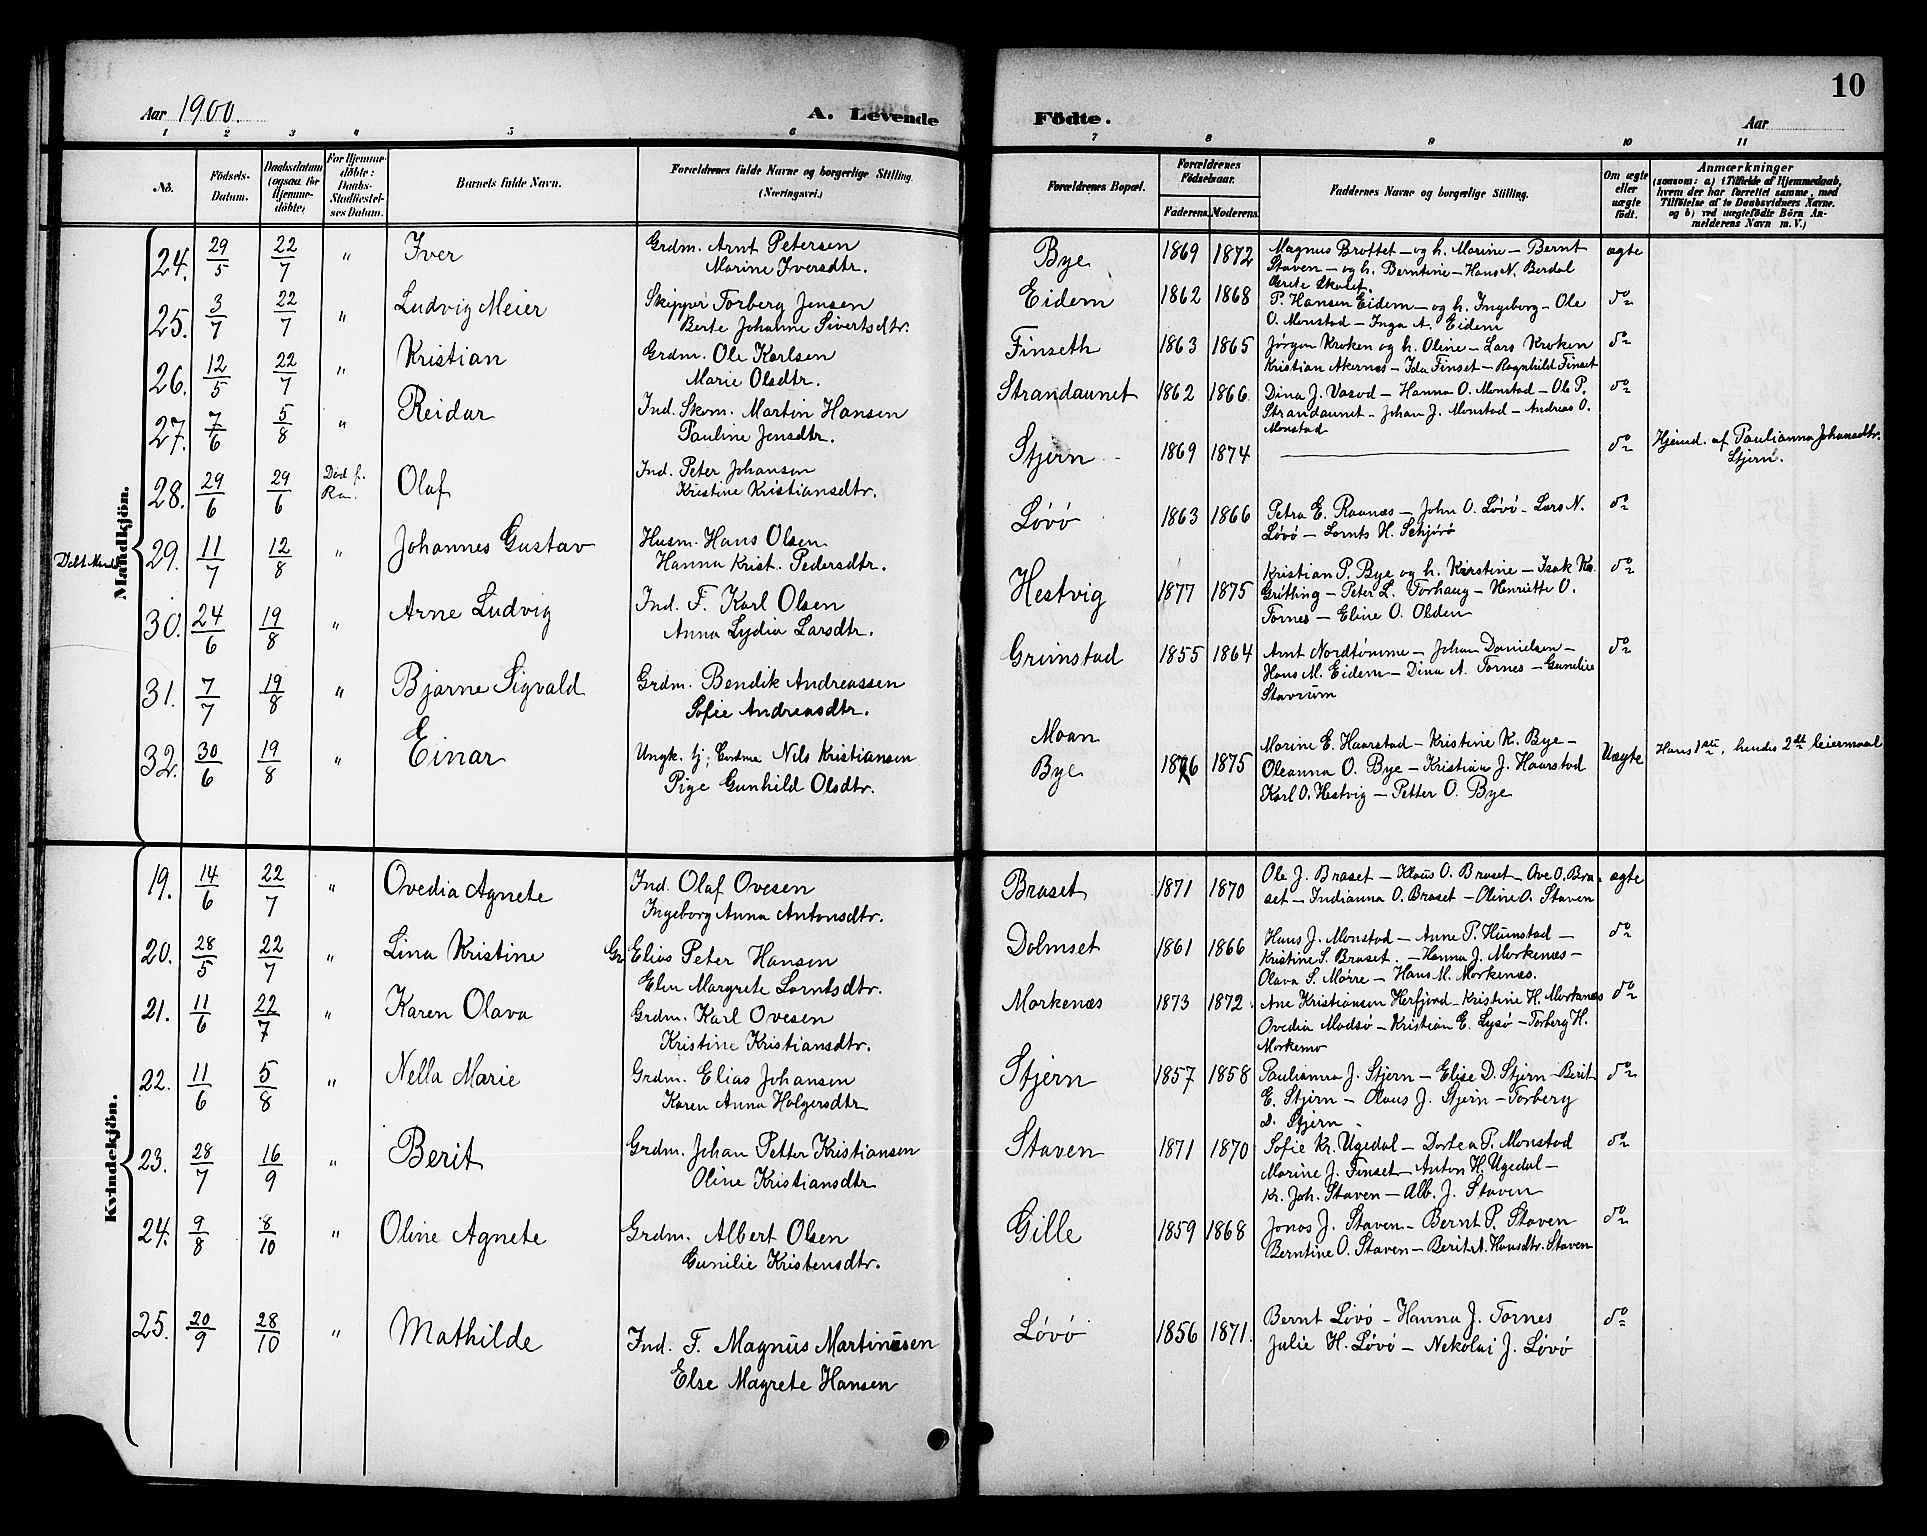 Aar 1900.
A. Levende
Födte.
10
Aar
1 2 3 4 5 6 7 8 9 10 11
No.
Födsels-Datum.
Daabsdatum (ogsaa for Hjemmedöbte)
For Hjemmedöbte: Daabs-Stadfæstelses Datum.
Barnets fulde Navn.
Forældrenes fulde Navne og borgerlige Stilling. (Næringsvei.)
Forældrenes Bopæl.
Forældrenes Födselsaar.
Faderens. Moderens.
Faddernes Navne og borgerlige Stilling.
Om ægte eller uægte födt.
Anmærkninger
(saasom: a) i Tilfælde af Hjemmedaab, hvem der har forrettet samme, med Tilföielse af to Daabsvidners Navne. og b) ved uægtefödte Börn Anmelderens Navn m. V.)
Mandkjön.
24. 29/5 22/7 " Iver
Grdm. Arnt Petersen
Marine Iversdtr.
Bye 1869 1872
Magnus Brottet – og h. Marine – Bernt
Staven – og h. Berntine – Hans N. Berdal
Grete Skolet.
ægte
25. 3/7 22/7 " Ludvig Meier
Skipper Torberg Jensen
Berte Johanne Sivertsdtr.
Eidem 1862 1868
P. Hansen Eidem – og h. Ingeborg – Ole
O. Monstad – Inga A. Eidem
do
26. 12/5 22/7 " Kristian
Grdm. Ole Karlsen
Marie Olsdtr.
Finseth 1863 1865
Jørgen Kroken og h. Oline – Lars Kroken
Kristian Akernes – Ida Finset – Ragnhild Finset
do
27. 7/6 5/8 " Reidar
Ind. Skom. Martin Hansen
Pauline Jensdtr.
Strandaunet 1862 1866
Dina J. Vasvd – Hanna O. Monstad – Ole P.
Strandaunet – Johan J. Monstad – Andreas O.
Monstad
do
28. 29/6 29/6 Død f. Olaf
Ind. Peter Johansen
Kristine Kristiansdtr.
Stjern 1869 1874
do
Hjemd. af Paulianna Johansdtr.
Stjern.
29. 11/7 12/8 " Johannes Gustav
Husm. Hans Olsen
Hanna Krist. Pedersdtr.
Løvø 1863 1866
Petra E. Raanæs – John O. Løvø – Lars N.
Løvø – Lornts H. Schjørø
do
30. 24/6 19/8 " Arne Ludvig
Ind. F. Karl Olsen
Anna Lydia Larsdtr.
Hestvig 1877 1875
Kristian P. Bye og h. Kerstine – Isak Kr.
Gritting – Peter L. Torhaug – Henritte O.
Tornes – Eline O. Olden
do
31. 7/7 19/8 " Bjarne Sigvald
Grdm. Bendik Andreassen
Sofie Andreasdtr.
Grimstad 1855 1864
Arnt Nordtømme – Johan Danielsen –
Hans M. Eidem – Dina A. Tornes – Gunilie
Stavrum
do
32. 30/6 19/8 " Einar
Ungk. tj; Nils Kristiansen
Pige Gunhild Olsdtr.
Moan
Bye 1876 1875
Marine E. Haarstad – Kristine K. Bye –
Oleanna O. Bye – Kristian J. Haarstad
Karl O. Hestvig – Petter O. Bye
Uægte
Hans 1ste, hendes 2det leiermaal
Kvindekjön.
19. 14/6 22/7 " Ovedia Agnete
Ind. Olaf Ovesen
Ingeborg Anna Antonsdtr.
Braset 1871 1870
Ole J. Braset – Klaus O. Braset – Ove O. Bra-
set – Indianna O. Braset – Oline O. Staven
ægte
20. 28/5 22/7 " Lina Kristine
Gr. Elias Peter Hansen
Elen Margrete Lorntsdtr.
Dolmset 1861 1866
Hans J. Monstad – Anne P. Humstad –
Kristine S. Braset. – Hanna J. Morkenæs –
Olava S. Mørre – Hans M. Morkenæs.
do
21. 11/6 22/7 " Karen Olava
Grdm. Karl Ovesen
Kristine Kristiansdtr.
Morkenæs 1873 1872
Ane Kristiansen Herfjord – Kristine H. Morkenæs
Ovedia Madsø – Kristian E. Lysø – Torberg H.
Morkemo
do
22. 11/6 5/8 " Nella Marie
Grdm. Elias Johansen
Karen Anna Holgersdtr
Stjern 1857 1858
Paulianna J. Stjern – Elise D. Stjern – Berit
E. Stjern – Olaus J. Stjern – Torberg
D. Stjern.
do
23. 28/7 16/9 " Berit
Grdm. Johan Petter Kristiansen
Oline Kristiansdtr
Staven 1871 1870
Sofie Kr. Ugedal – Dortea P. Monstad
Marine J. Finset – Anton H. Ugedal –
Kr. Joh. Staven – Alb. J. Staven
do
24. 9/8 8/10 " Oline Agnete
Grdm. Albert Olsen
Gunilie Kristensdtr.
Gille 1859 1868
Jonas J. Staven – Bernt P. Staven
Berntine O. Staven – Berit A. Hansdtr. Staven
do
25. 20/9 28/10 " Mathilde
Ind. F. Magnus Martinusen
Else Magrete Hansen
Løvø 1856 1871.
Bernt Løvø – Hanna J. Tornes
Julie H. Løvø – Nekolai J. Løvø
do